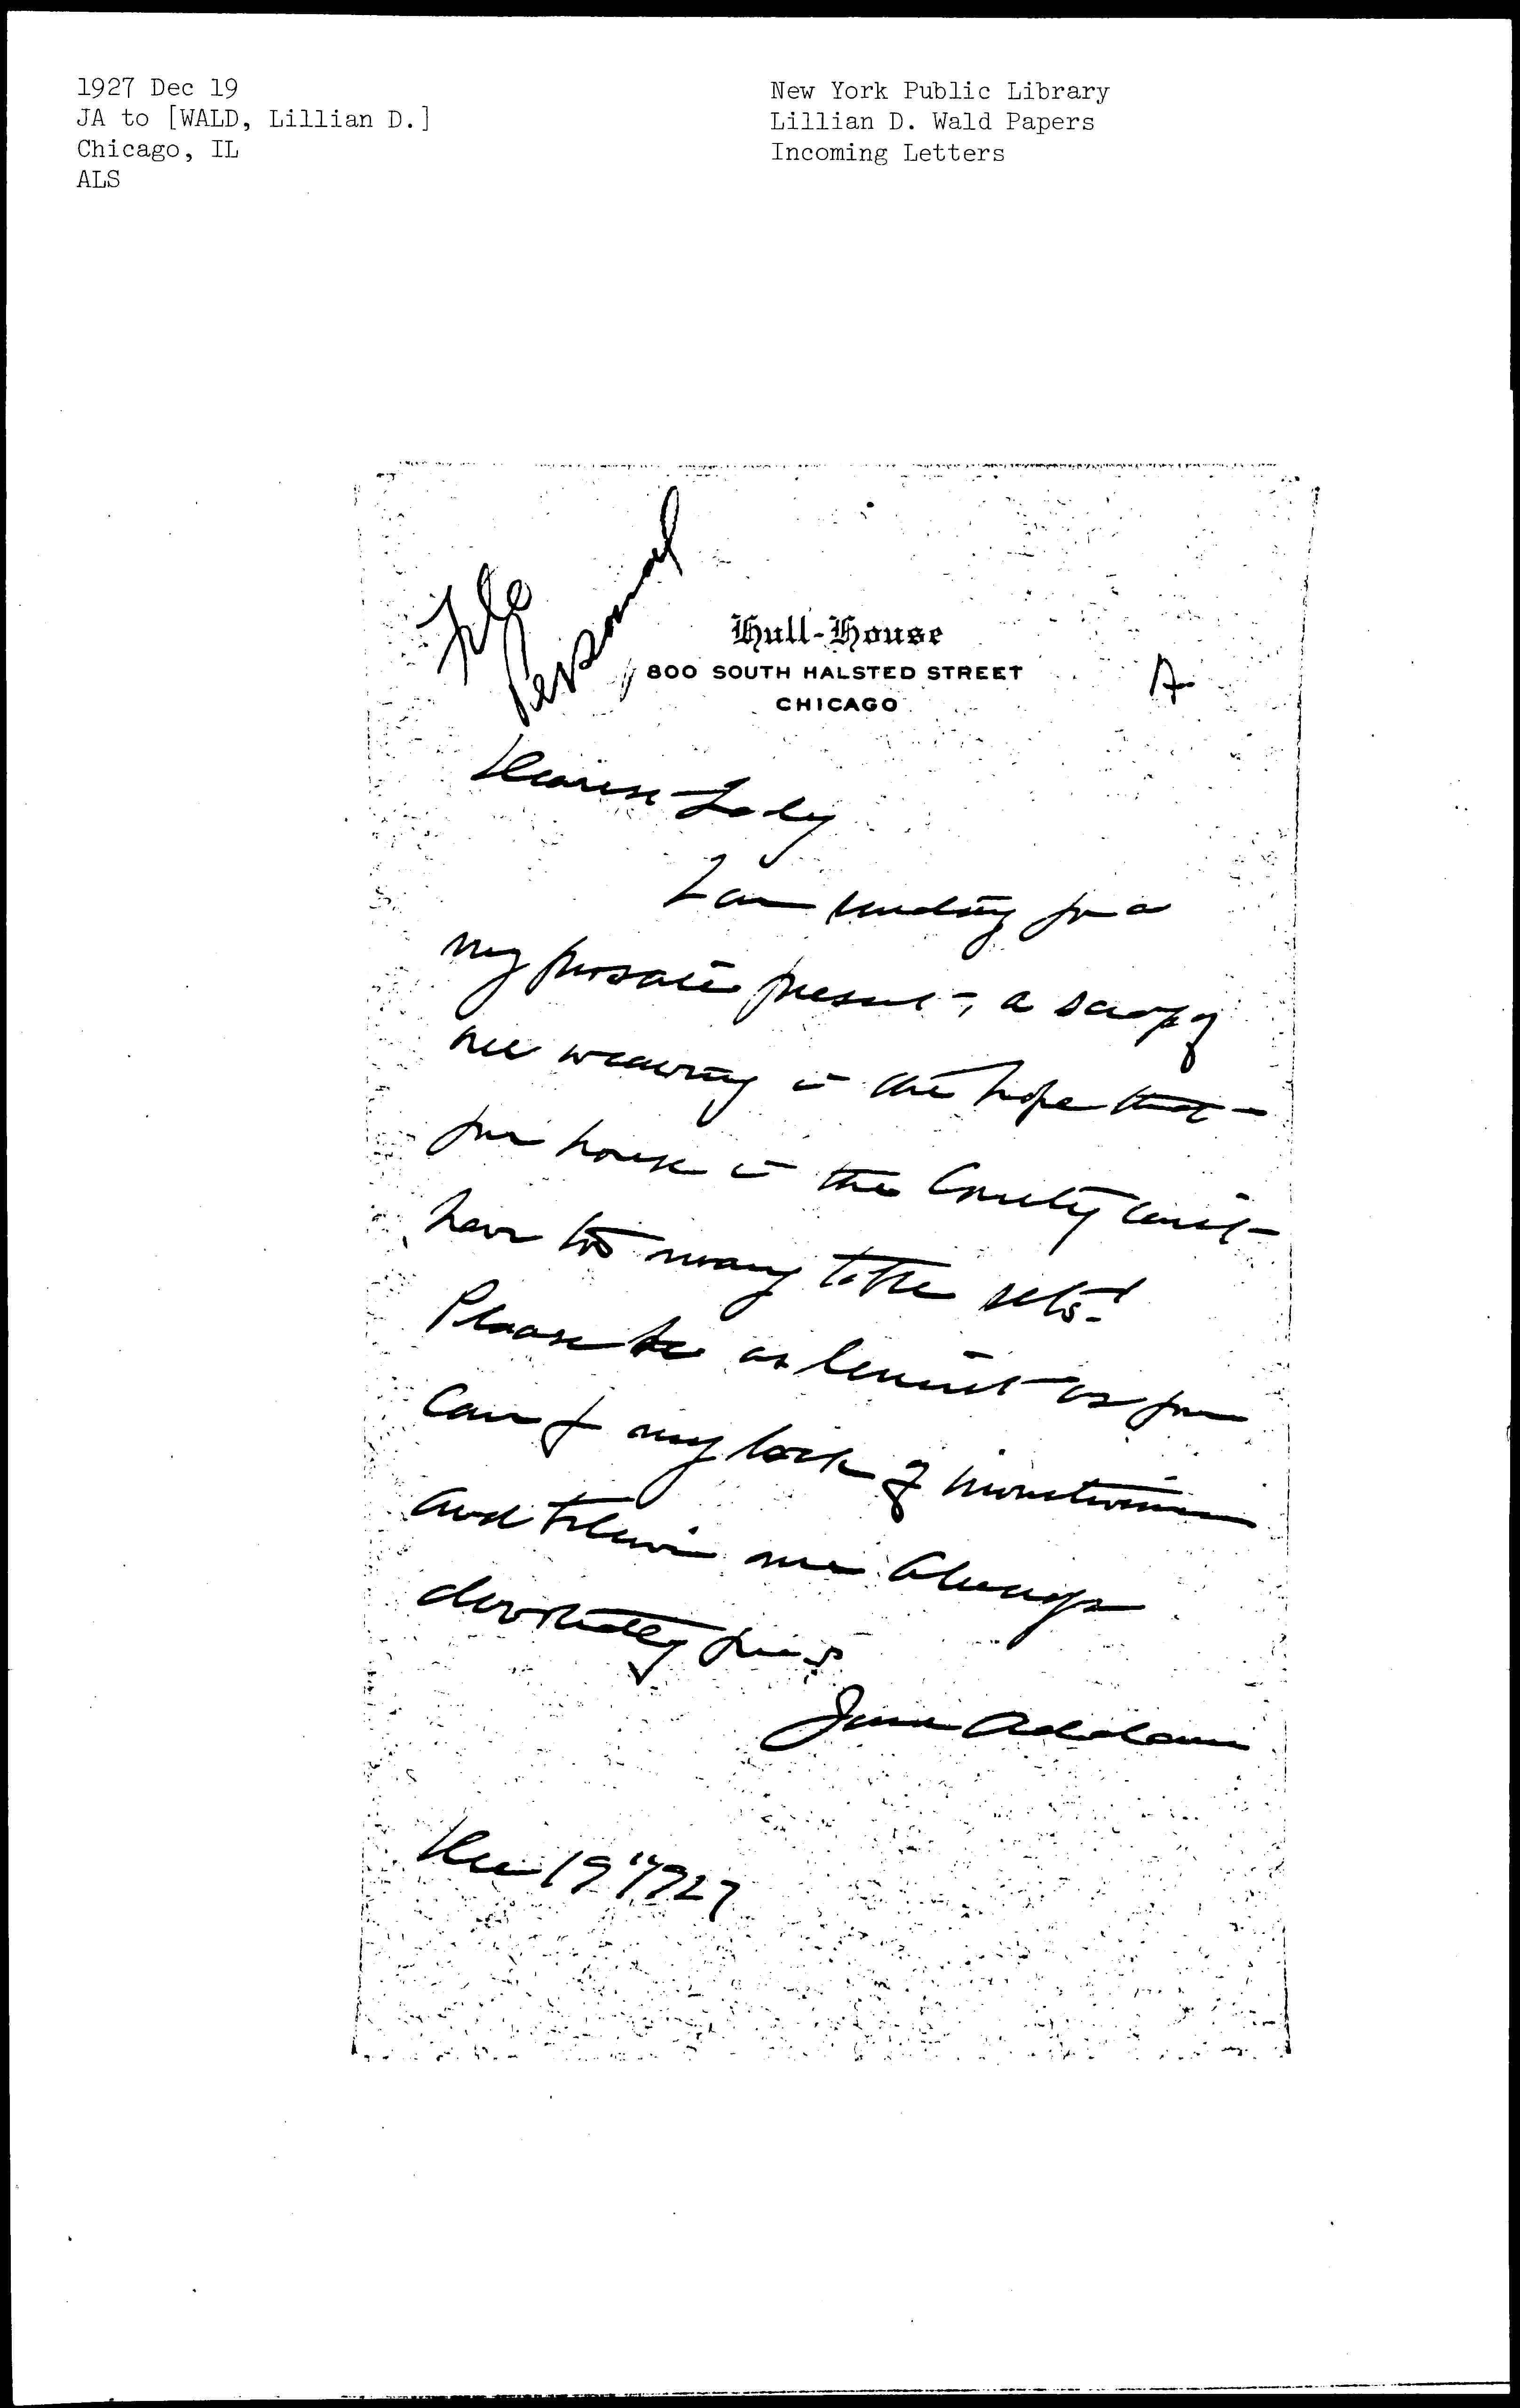 1927 Dec 19
JA to [WALD, Lillian D.]
Chicago, IL
ALS
New York Public Library
Lillian D. Wald Papers
Incoming Letters
File
Personal
Hull-House
800 SOUTH HALSTED STREET
CHICAGO
A
Dearest Lady
I am sending you a
my prosaic present, a scrap of
weaving in the hope that
your house in the County can't
have too many table sets!
Please be as lenient as you
can of my lack of
and believe me always
devotedly yours
Jane Addams
Dec 19" 1927